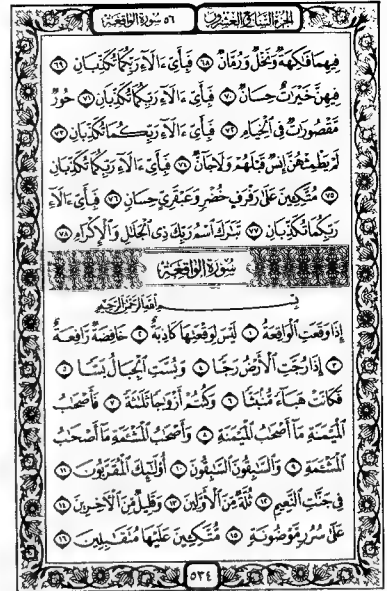 الجزء السابع والعشرون ٥٦ سورة الواقعة
فِيهِمَا فَاكِهَةٌ وَنَخْلٌ وَرُمَّانٌ ٦٨ فَبِأَيِّ ءَالَآءِ رَبِّكُمَا تُكَذِّبَانِ ٦٩
فِيهِنَّ خَيْرَاتٌ حِسَانٌ ٧٠ فَبِأَيِّ ءَالَآءِ رَبِّكُمَا تُكَذِّبَانِ ٧١ حُورٌ
مَّقْصُورَاتٌ فِي ٱلْخِيَامِ ٧٢ فَبِأَيِّ ءَالَآءِ رَبِّكُمَا تُكَذِّبَانِ ٧٣
لَمْ يَطْمِثْهُنَّ إِنسٌ قَبْلَهُمْ وَلَا جَانٌّ ٧٤ فَبِأَيِّ ءَالَآءِ رَبِّكُمَا تُكَذِّبَانِ
٧٥ مُتَّكِئِينَ عَلَىٰ رَفْرَفٍ خُضْرٍ وَعَبْقَرِيٍّ حِسَانٍ ٧٦ فَبِأَيِّ ءَالَآءِ
رَبِّكُمَا تُكَذِّبَانِ ٧٧ تَبَٰرَكَ ٱسْمُ رَبِّكَ ذِي ٱلْجَلَٰلِ وَٱلْإِكْرَامِ ٧٨
سُورَةُ الوَاقِعَةِ
بِسْمِ ٱللَّهِ ٱلرَّحْمَٰنِ ٱلرَّحِيمِ
إِذَا وَقَعَتِ ٱلْوَاقِعَةُ ١ لَيْسَ لِوَقْعَتِهَا كَاذِبَةٌ ٢ خَافِضَةٌ رَّافِعَةٌ
٣ إِذَا رُجَّتِ ٱلْأَرْضُ رَجًّا ٤ وَبُسَّتِ ٱلْجِبَالُ بَسًّا ٥
فَكَانَتْ هَبَآءً مُّنۢبَثًّا ٦ وَكُنتُمْ أَزْوَٰجًا ثَلَٰثَةً ٧ فَأَصْحَٰبُ
ٱلْمَيْمَنَةِ مَآ أَصْحَٰبُ ٱلْمَيْمَنَةِ ٨ وَأَصْحَٰبُ ٱلْمَشْـَٔمَةِ مَآ أَصْحَٰبُ
ٱلْمَشْـَٔمَةِ ٩ وَٱلسَّٰبِقُونَ ٱلسَّٰبِقُونَ ١٠ أُو۟لَٰٓئِكَ ٱلْمُقَرَّبُونَ ١١
فِي جَنَّٰتِ ٱلنَّعِيمِ ١٢ ثُلَّةٌ مِّنَ ٱلْأَوَّلِينَ ١٣ وَقَلِيلٌ مِّنَ ٱلْءَاخِرِينَ ١٤
عَلَىٰ سُرُرٍ مَّوْضُونَةٍ ١٥ مُّتَّكِئِينَ عَلَيْهَا مُتَقَٰبِلِينَ ١٦
٥٣٤